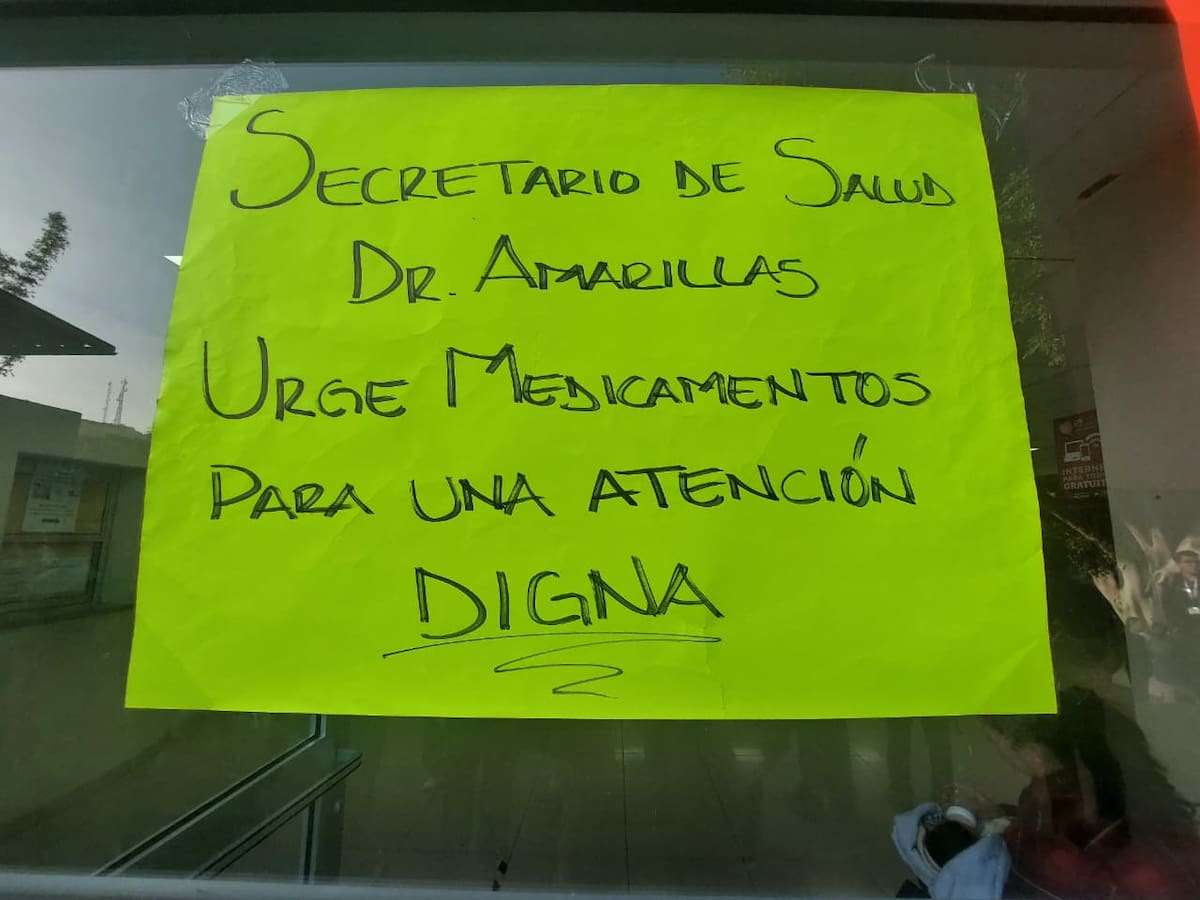 SECRETARIO DE SALUD
DR. AMARILLAS
URGE MEDICAMENTOS
PARA UNA ATENCIÓN
DIGNA
INTERNET
PARA TODOS
GRATUIT